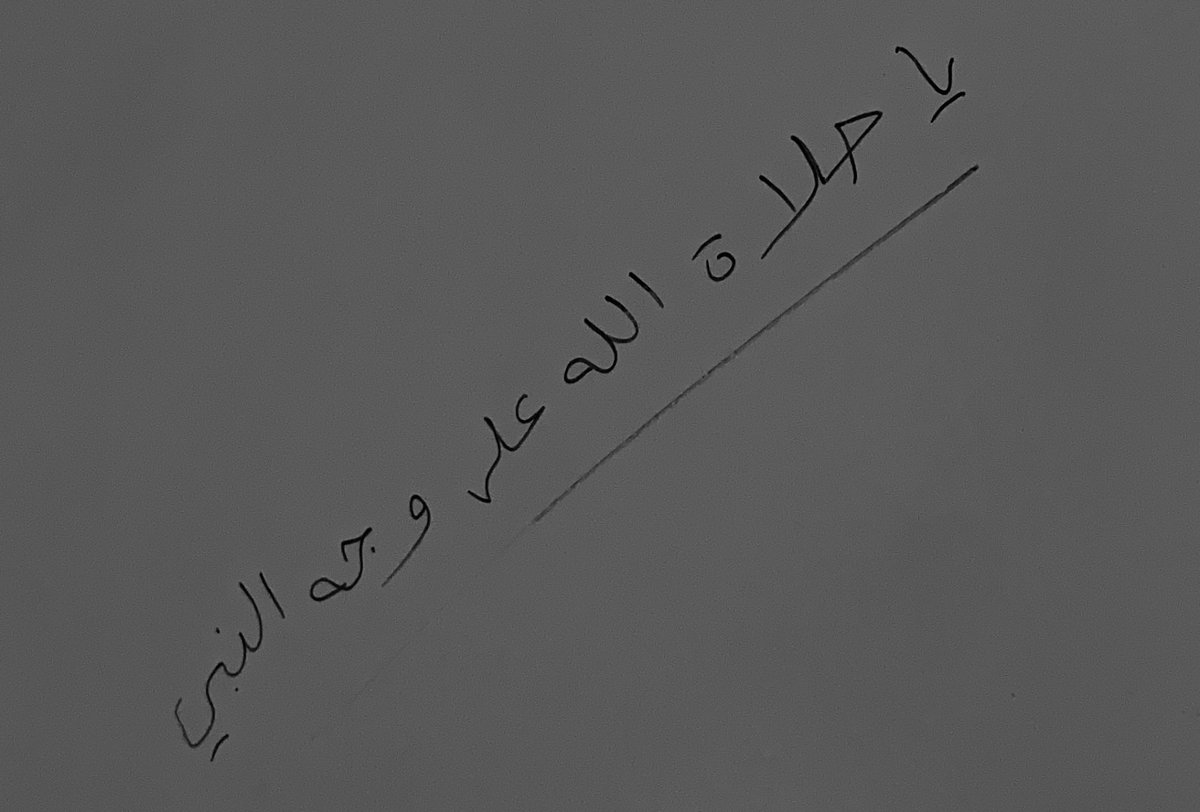 يا صلاة الله على وجه النبي